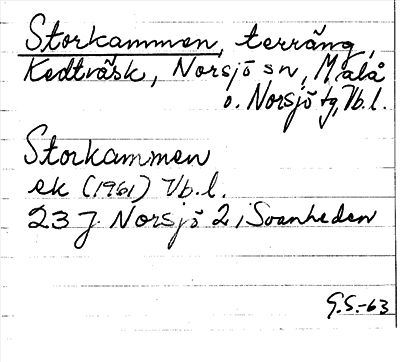 Storkammen, terräng,
Kedträsk, Norsjö sn, Malå
o. Norsjö tg, Vb.l.
Storkammen
ek (1961) Vb.l.
23 J Norsjö 2, Svanheden
G.S.-63